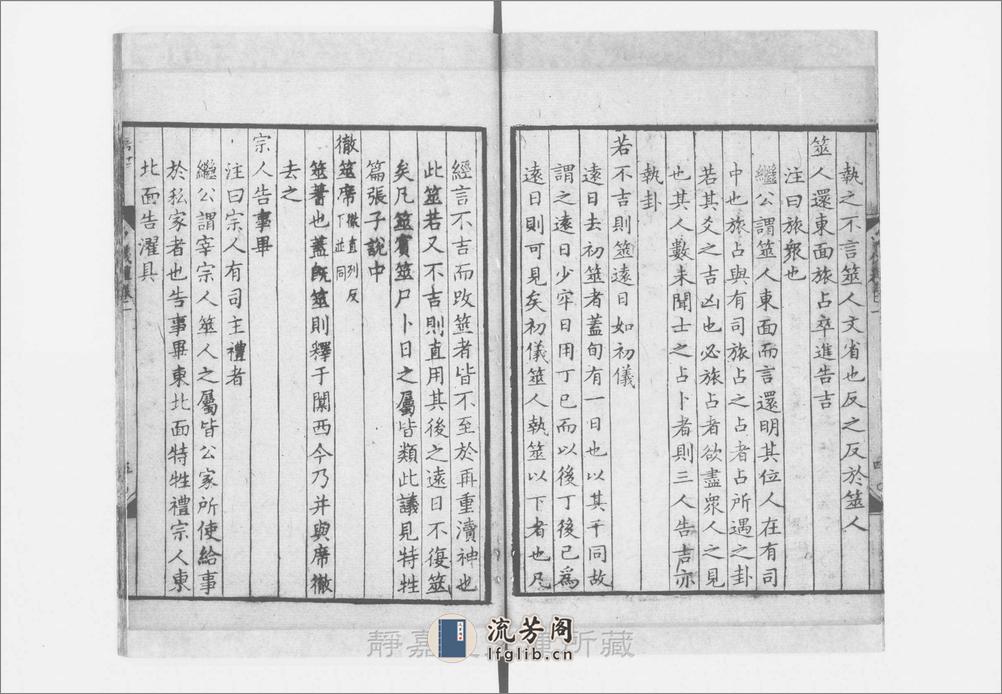 執之不言筮人文省也反之反於筮人
筮人還東面旅占卒進告吉
注曰旅衆也
繼公謂筮人東面而言還明其位人在有司
中也旅占與有司旅占之占者占所遇之卦
若其爻之吉凶也必旅占者欲盡衆人之見
也其人數未聞士之占卜者則三人告吉亦
執卦
若不吉則筮遠日如初儀
遠日去初筮者蓋旬有一日也以其干同故
謂之遠日少牢日用丁已而以後丁後已爲
遠日則可見矣初儀筮人執筮以下者也凡
經言不吉而改筮者皆不至於再重瀆神也
此筮若又不吉則直用其後之遠日不復筮
矣凡筮賓筮尸卜日之屬皆類此議見特牲
篇張子說中
徹筮席徹直列反
丁並同
筮蓍也蓋既筮則釋于閾西今乃并與席徹
去之
宗人告事畢
注曰宗人有司主禮者
繼公謂宰宗人筮人之屬皆公家所使給事
於私家者也告事畢東北面特牲禮宗人東
北面告濯具
靜嘉 所藏
流芳阁
lfglib.cn